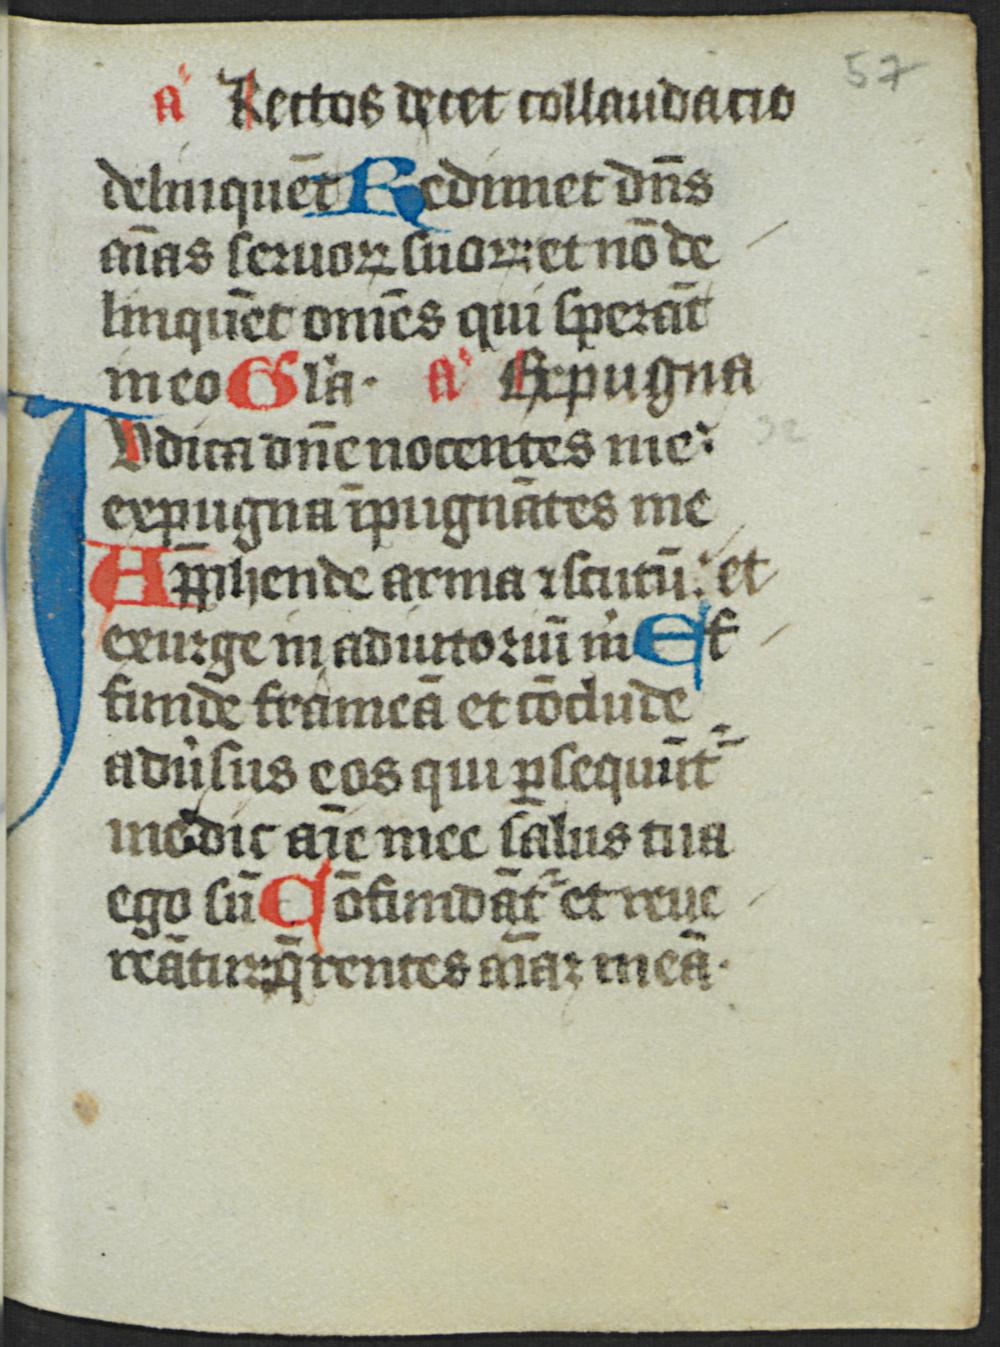 57
a͛ Rectos decet collaudacio
delinquēt Redimet dn̄s
aīas seruoꝝ suoꝝ: et nō de
linquēt om̄es qui sperāt
in eo Gl̄a· a͛ Expugna
IVdica dn̄e nocentes me:
expugna īpugnātes me
App̄hende arma ⁊ scutū: et
exurge in adiutoriū m̄ Ef
funde frameā et cōclude
adu̾sus eos qui ꝑsequūt᷑
me dic aīe mee salus tua
ego sū Cōfundāt᷑ et reue
reātur q̄rentes aīaꝫ meā·